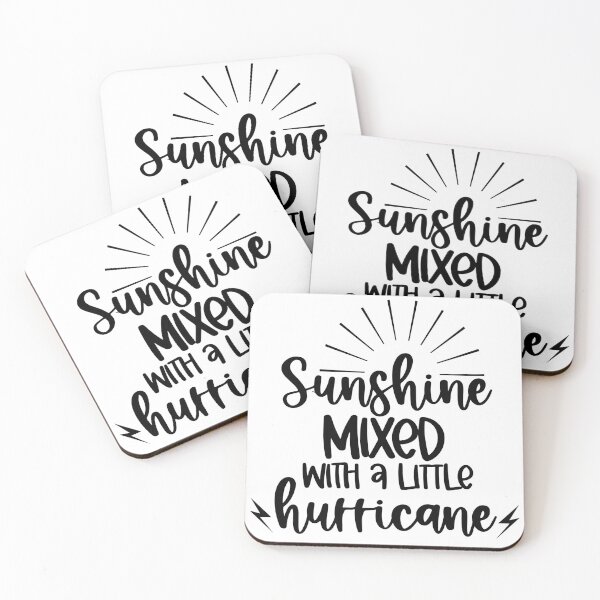 Sunshine
Sunshine
MIXED
WITH a LITTLE
Sunshine
MIXED
WITH a
Sunshine
MIXED
WITH a LITTLE
hurricane